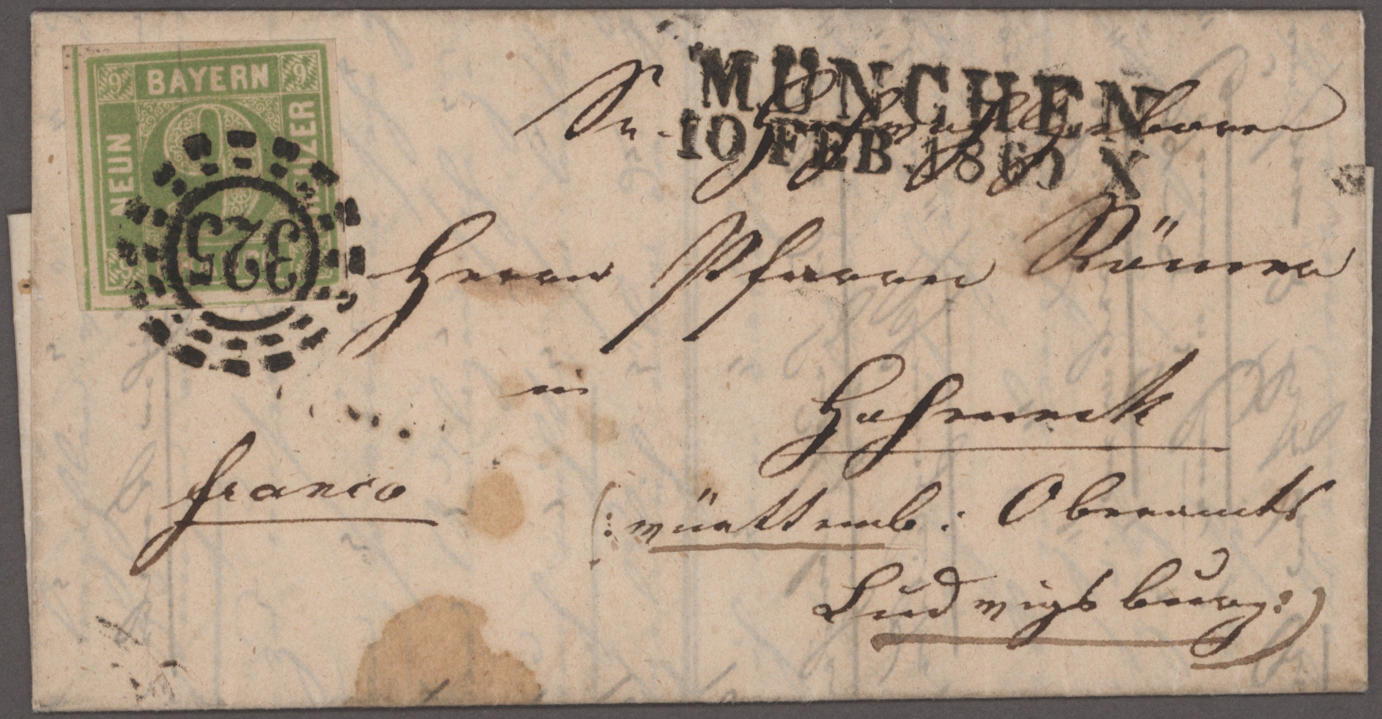 BAYERN
9 9
NEUN
9
325
MÜNCHEN
10 FEB. 1860 X
Sr. Hochwohlgeboren
Herrn Pfarrer Römer
in
Hoheneck
franco
(: württemb: Oberamts
Ludwigsburg:)